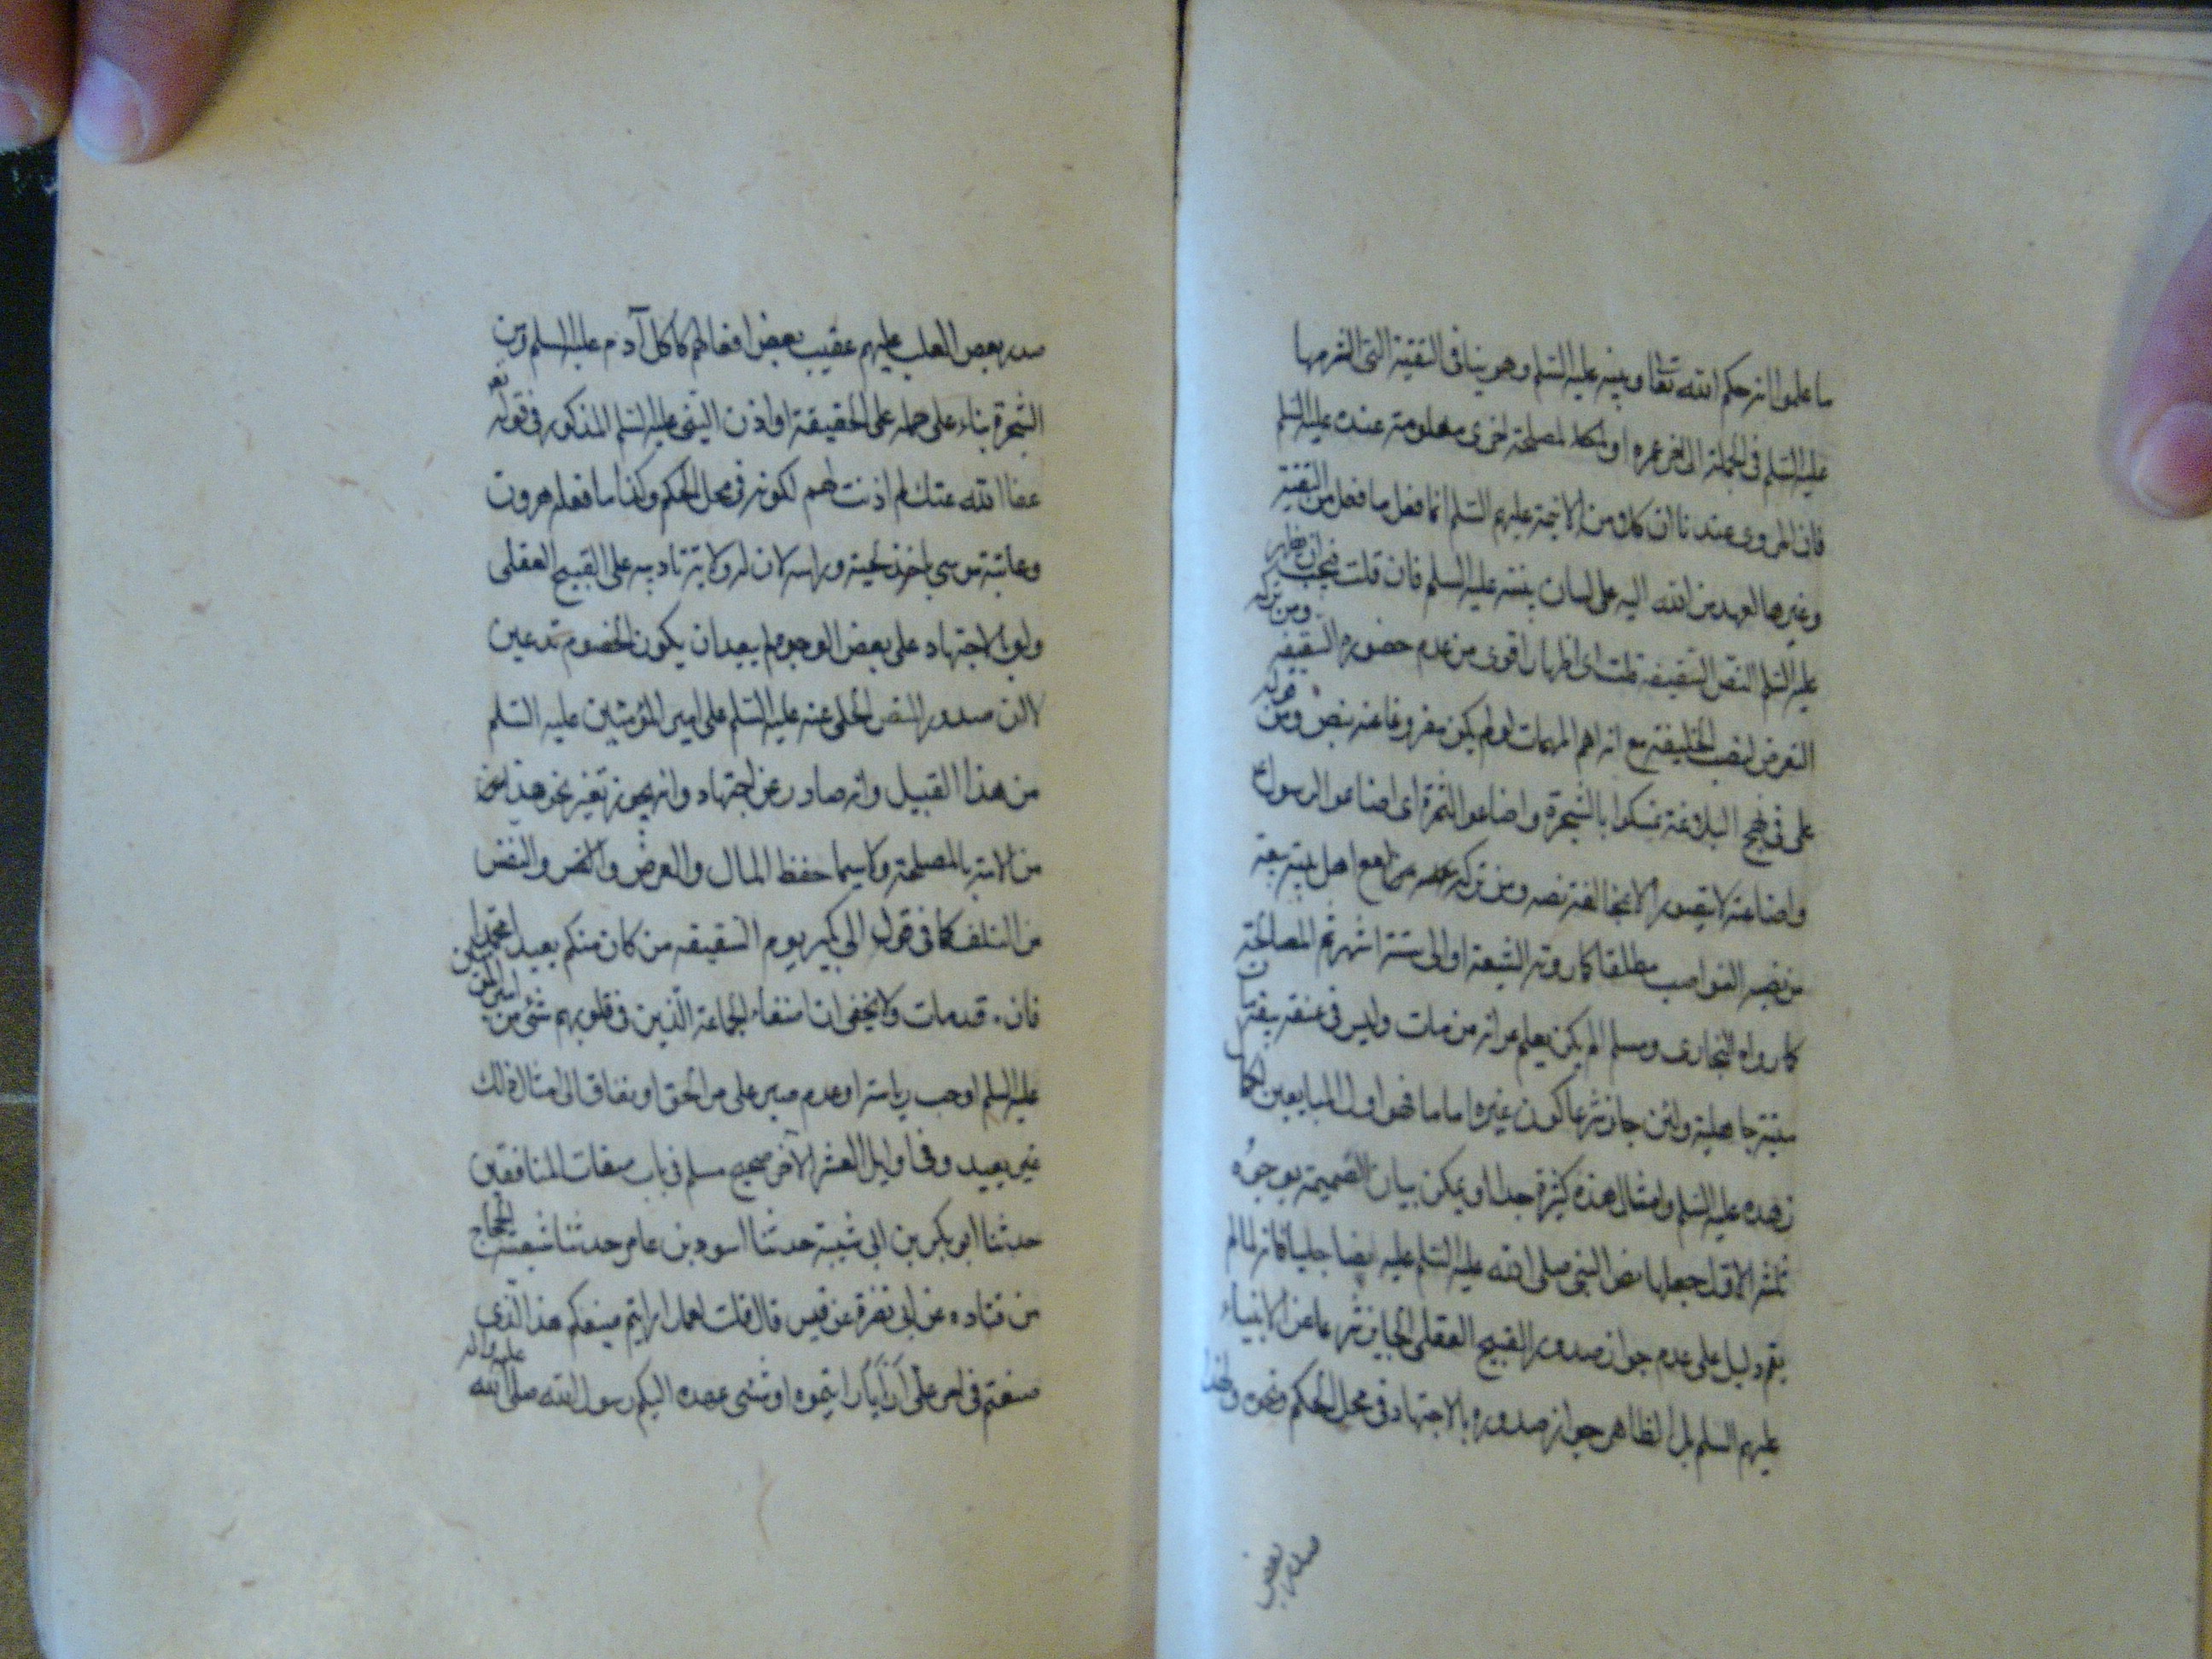 ما علموا انه حكم الله تعالى وبينه عليه السلم وهو ينافى التقية التى التزمها
عليه السلم فى الجملة الى اخر عمره او لمصلحة اخرى معلومة عنده عليه السلم
فان المروى عندنا ان كلا من الائمة عليهم السلم انما فعل ما فعل من التقية
وغيرها لعهد من الله اليه على لسان نبيه عليه السلم فان قلت فيجب ان يظهر
عليه السلم النص السقيفة قلت اى اظهار اقوى من عدم حضوره السقيفه ومن تركه
التعرض لنصب الخليفة مع انه اهم المهمات لو لم يكن مفروغا عنه بنص ومن قوله
على فى نهج البلاغة تمسكوا بالشجرة واضاعوا الثمرة اى اضاعوا الرسول
واضاعته لا يتصور الا بمخالفة نصه ومن تركه مع اهل بيته بيعة
من نصبه النواصب مطلقا كما روته الشيعة او الى ستة اشهر ثم المصالحة
كما رواه البخارى ومسلم الم يكن يعلم انه من مات وليس فى عنقه بيعة مات
ميتة جاهلية ولئن جاز شرعا كون غيره اماما فهو اول المبايعين لكمال
زهده عليه السلم وامثال هذه كثيرة جدا ويمكن بيان الصميمة بوجوه
ثلثه الاول جعلها نص النبى صلى الله عليه السلم عليه ايضا جليا فانه لما لم
يقم دليل على عدم جواز صدور القبيح العقلى الجايز شرعا عن الانبياء
عليهم السلم بل الظاهر جواز صدوره بالاجتهاد فى محل الحكم ونحوه ولهذا
صدر بعض
صدر بعض العتاب عليهم عقيب بعض افعالهم كاكل آدم عليه السلم من
الشجرة بناء على حمله على الحقيقة او اذن النبى عليه السلم المذكور فى قوله تعـ
عفا الله عنك لم اذنت لهم لكونه فى محل الحكم وكذا ما فعله هرون
وعاتبه موسى باخذ لحيته وراسه لان له ولاية تاديبه على القبيح العقلى
ولو بالاجتهاد على بعض الوجوه لم يبعد ان يكون الخصوم مدعين
لان صدور النص الجلى عنه عليه السلم على امير المؤمنين عليه السلم
من هذا القبيل وانه صادر عن اجتهاد وانه يجوز تغير نحو هذا
من الامة بالمصلحة ولا سيما حفظ المال والعرض والنفس
من التلف كما فى قول ابى بكر يوم السقيفه من كان منكم يعبد محمدا
فانه قد مات ولا يخفى ان اخفاء الجماعة الذين فى قلوبهم شئ من امير المؤمنين
عليه السلم لوجب رياسته او عدم صبره على مر الحق او نفاق الى امثال ذلك
غير بعيد وفى اوايل العشر الآخر صحيح مسلم فى باب صفات المنافقين
حدثنا ابو بكر بن ابى شيبة حدثنا اسود بن عامر حدثنا شعبة بن الحجاج
من قتاده عن ابى نضرة عن قيس قال قلت لعمار ارايتم صنعكم هذا الذى
صنعتم فى امر على أرأيا رايتموه او شئ عهده اليكم رسول الله صلى الله عليه واله